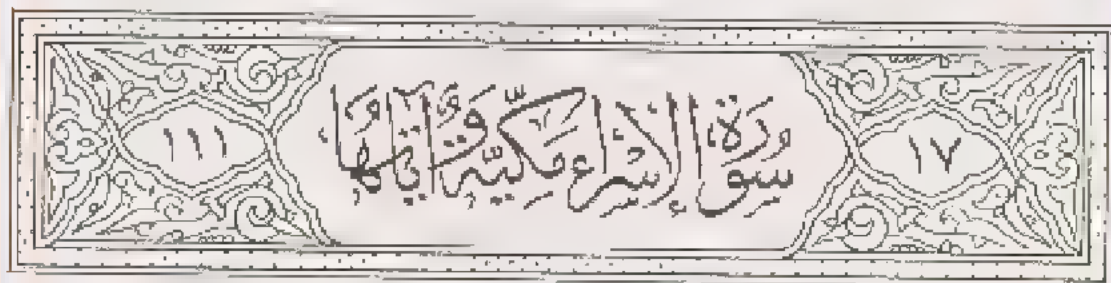 ١٧ سورة الإسراء مكية وآياتها ١١١